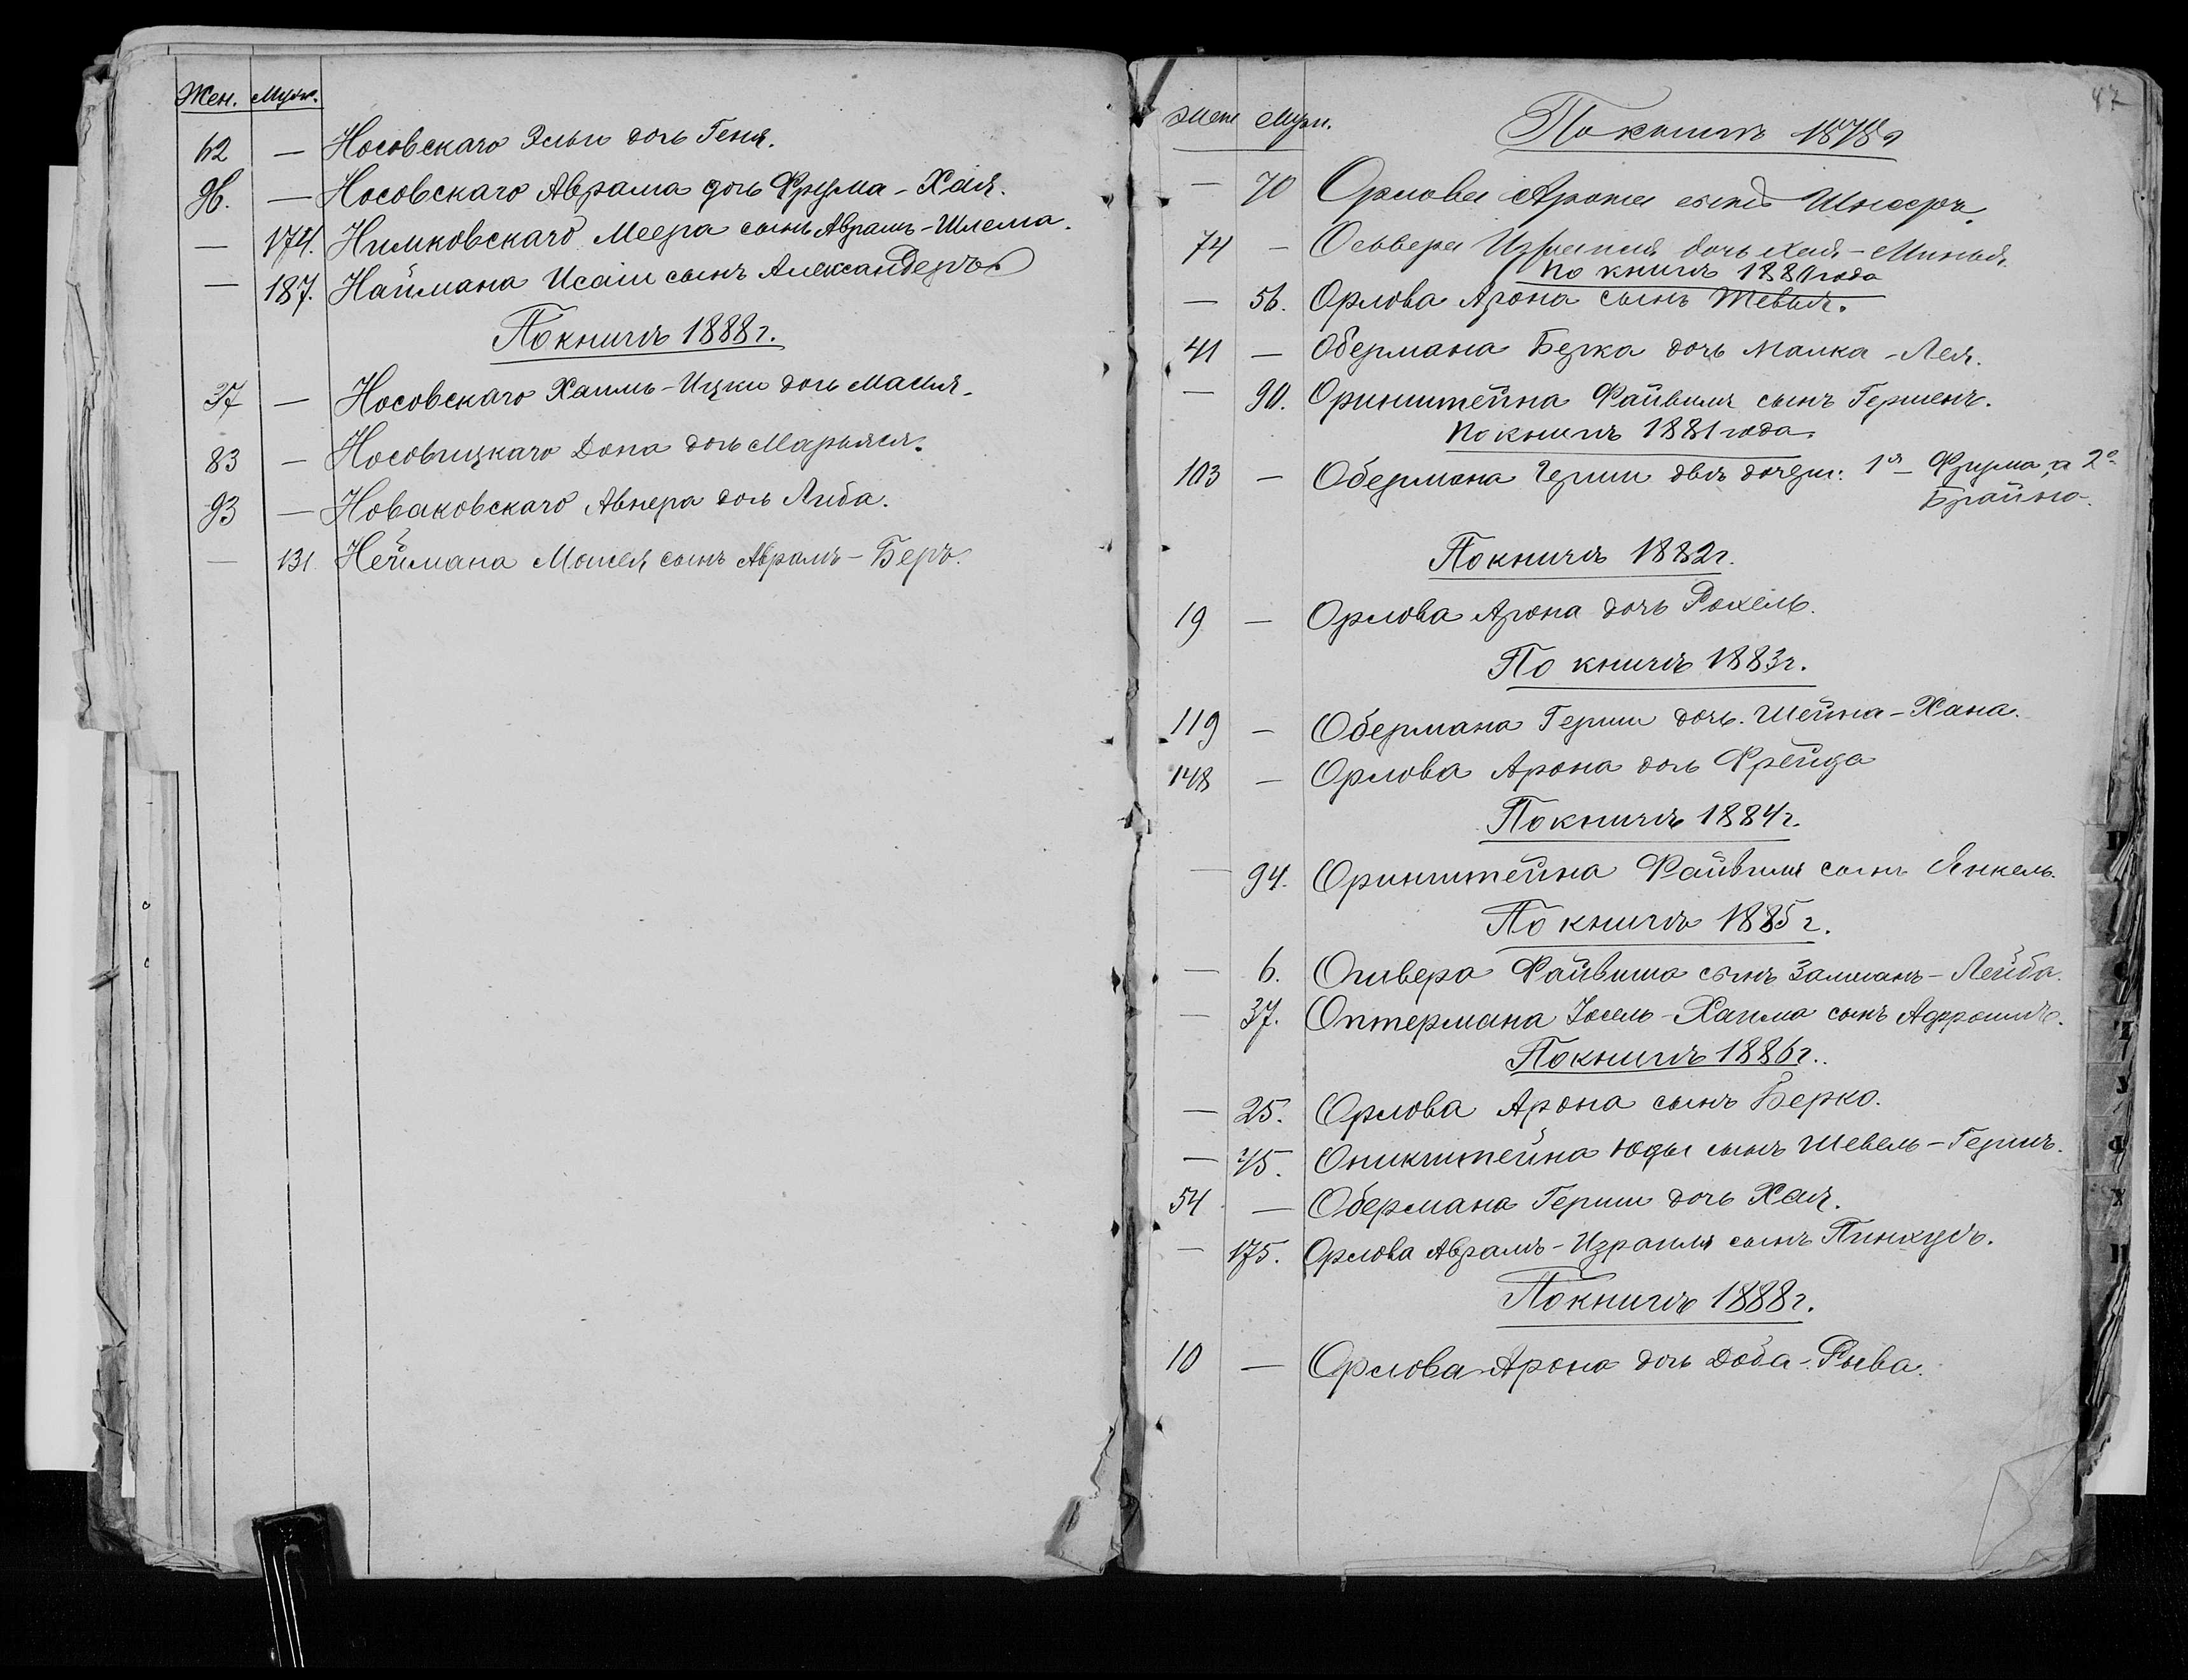 Жен. Муж.
62 — Носовскаго Эльи дочь Геня.
96. — Носовскаго Аврама дочь Фрума-Хая.
— 174. Нимковскаго Меера сынъ Аврамъ-Шлема.
— 187. Наймана Исаіи сынъ Александеръ
По книгѣ 1888 г.
37 — Носовскаго Хаимъ-Ицки дочь Масия.
83 — Носовицкаго Дона дочь Марьяся.
93 — Новаковскаго Авнера дочь Либа.
— 131. Неймана Моисея сынъ Аврамъ-Беръ.
87
Жен Муж.
По книгѣ 1878 г
— 70 Орлова Арона сынъ Шнееръ
74 — Израиля дочь Хая-Минья.
По книгѣ 1880 года
— 56. Орлова Арона сынъ Шевия.
41 — Обермана Берка дочь Малка-Лея.
— 90. Оринштейна Файвиля сынъ Гершенъ.
По книгѣ 1881 года.
103 — Обермана Герши двѣ дочери: 1я Фрума, а 2я
Брайна.
По книгѣ 1882 г.
19 — Орлова Арона дочь Рохель.
По книгѣ 1883 г.
119 — Обермана Герши дочь Шейна-Хана.
148 — Орлова Арона дочь Фрейда
По книгѣ 1884 г.
— 94. Оринштейна Файвиля сынъ Янкель.
По книгѣ 1885 г.
— 6. Оливера Файвиша сынъ Залманъ-Лейба.
— 37. Оптермана Іосель-Хаима сынъ
По книгѣ 1886 г.
— 25. Орлова Арона сынъ Берко.
— 45. Оникштейна Юды сынъ Шевель-Гершъ.
54 — Обермана Герши дочь Хая.
— 175. Орлова Аврамъ-Израиля сынъ Пинхусъ.
По книгѣ 1888 г.
10 — Орлова Арона дочь Доба-Рыва.
П
Т
У
Ф
Х
Ц